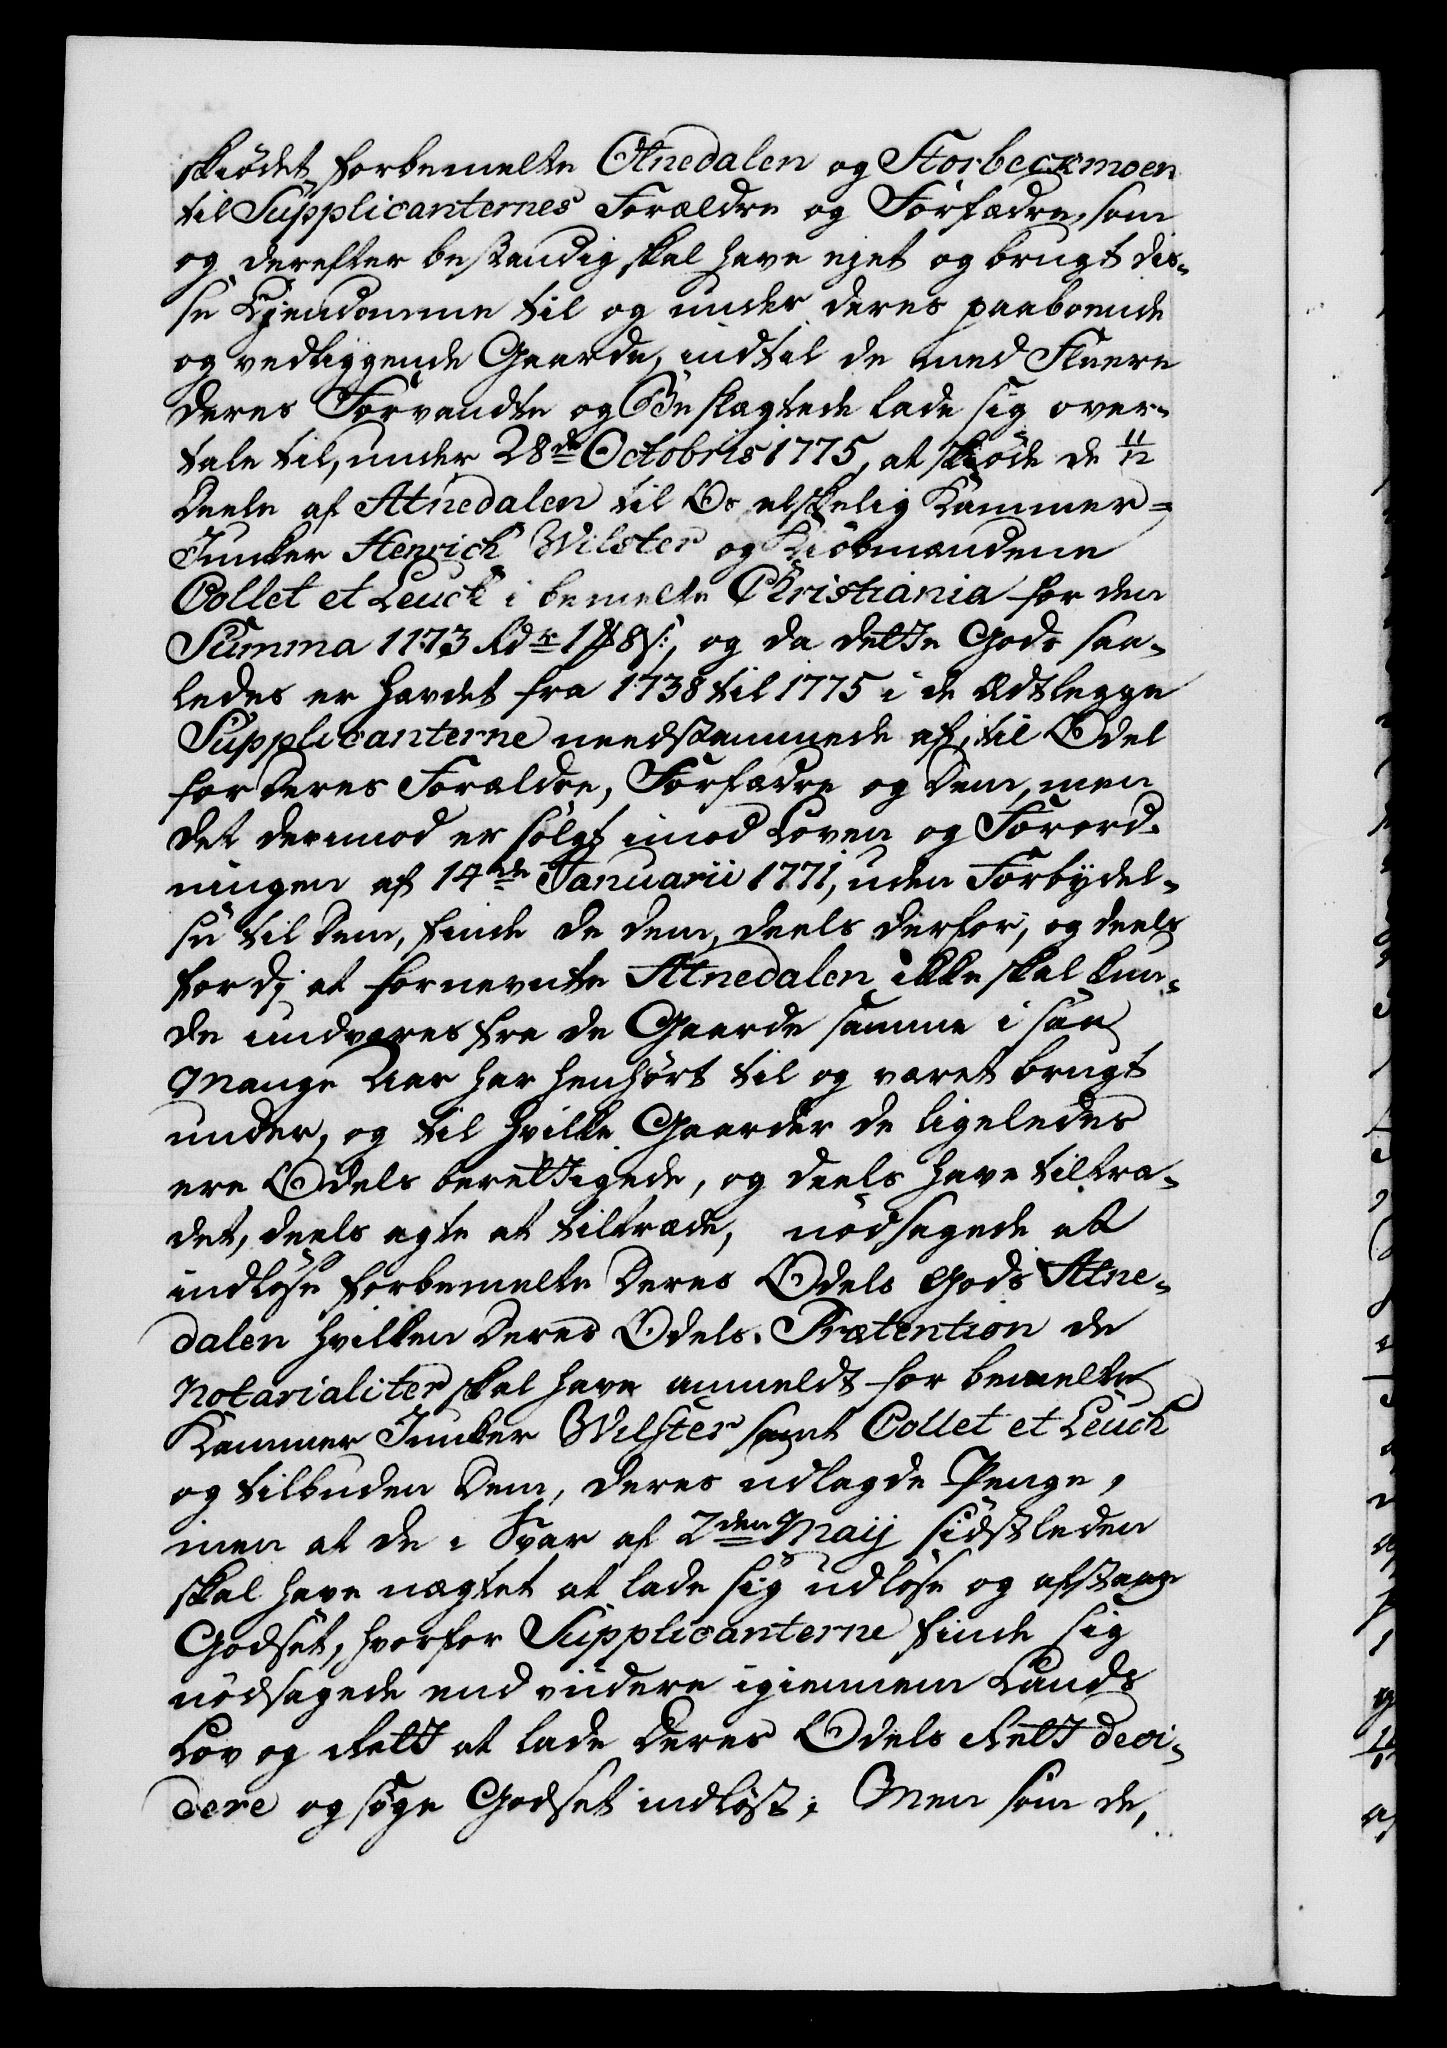 skiødet forbemelte Atnedalen og Storbeckmoen
til Supplicanternes Forældre og Forfædre, som
og derefter bestandig skal have ejet og brugt dis-
se Ejendomme til og under deres paaboende
og vedliggende Gaarde, indtil de med Fleere
deres Forvandte og Beslægtede lade sig over-
tale til, under 28de Octobris 1775, at skiøde de 11/12
Deele af Atnedalen til Os elskelig Kammer-
Junker Henrich Wilster og Kiøbmændene
Collet et Leuch i bemelte Christiania for den
Summa 1173 Rdr 1 ₰ 8 s:, og da dette Gods saa-
ledes er hævdet fra 1738 til 1775 i de Ædtlegge
Supplicanterne needstammede af, til Odel
for Deres Forældre, Forfædre og Dem, men
det derimod er solgt imod Loven og Forord-
ningen af 14de Januarii 1771, uden Forbydel-
se til Dem, finde de dem, deels derfor, og deels
fordj at fornevnte Atnedalen ikke skal kun-
de undværes fra de Gaarde samme i saa
mange Aar har henhørt til og været brugt
under, og til hvilke Gaarder de ligeledes
ere Odels berettigede, og deels have tiltræ-
det, deels agte at tiltræde, nødsagede at
indløse forbemelte Deres Odels Gods Atne-
dalen hvilken Deres Odels-Prætention de
notarialiter skal have anmeldt for bemelte
Kammer Junker Wilster samt Collet et Leuch
og tilbuden Dem, deres udlagde Penge,
men at de i Svar af 2den Maij sidstleden
skal have nægtet at lade sig udløse og afstaae
Godset, hvorfor Supplicanterne finde sig
nødsagede end viidere igiennem Lands
Lov og Rett at lade Deres Odels Rett deci-
dere og søge Godset indløst; Men som de,